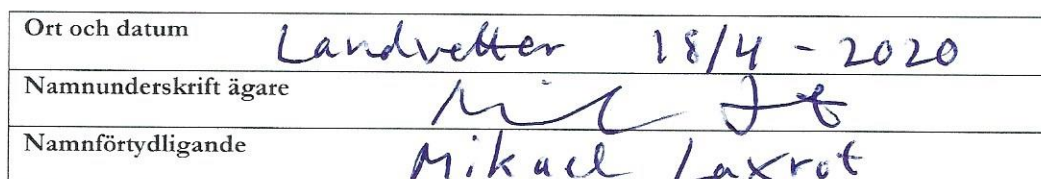 Ort och datum Landvetter 18/4 - 2020
Namnunderskrift ägare
Namnförtydligande Mikael Laxrot